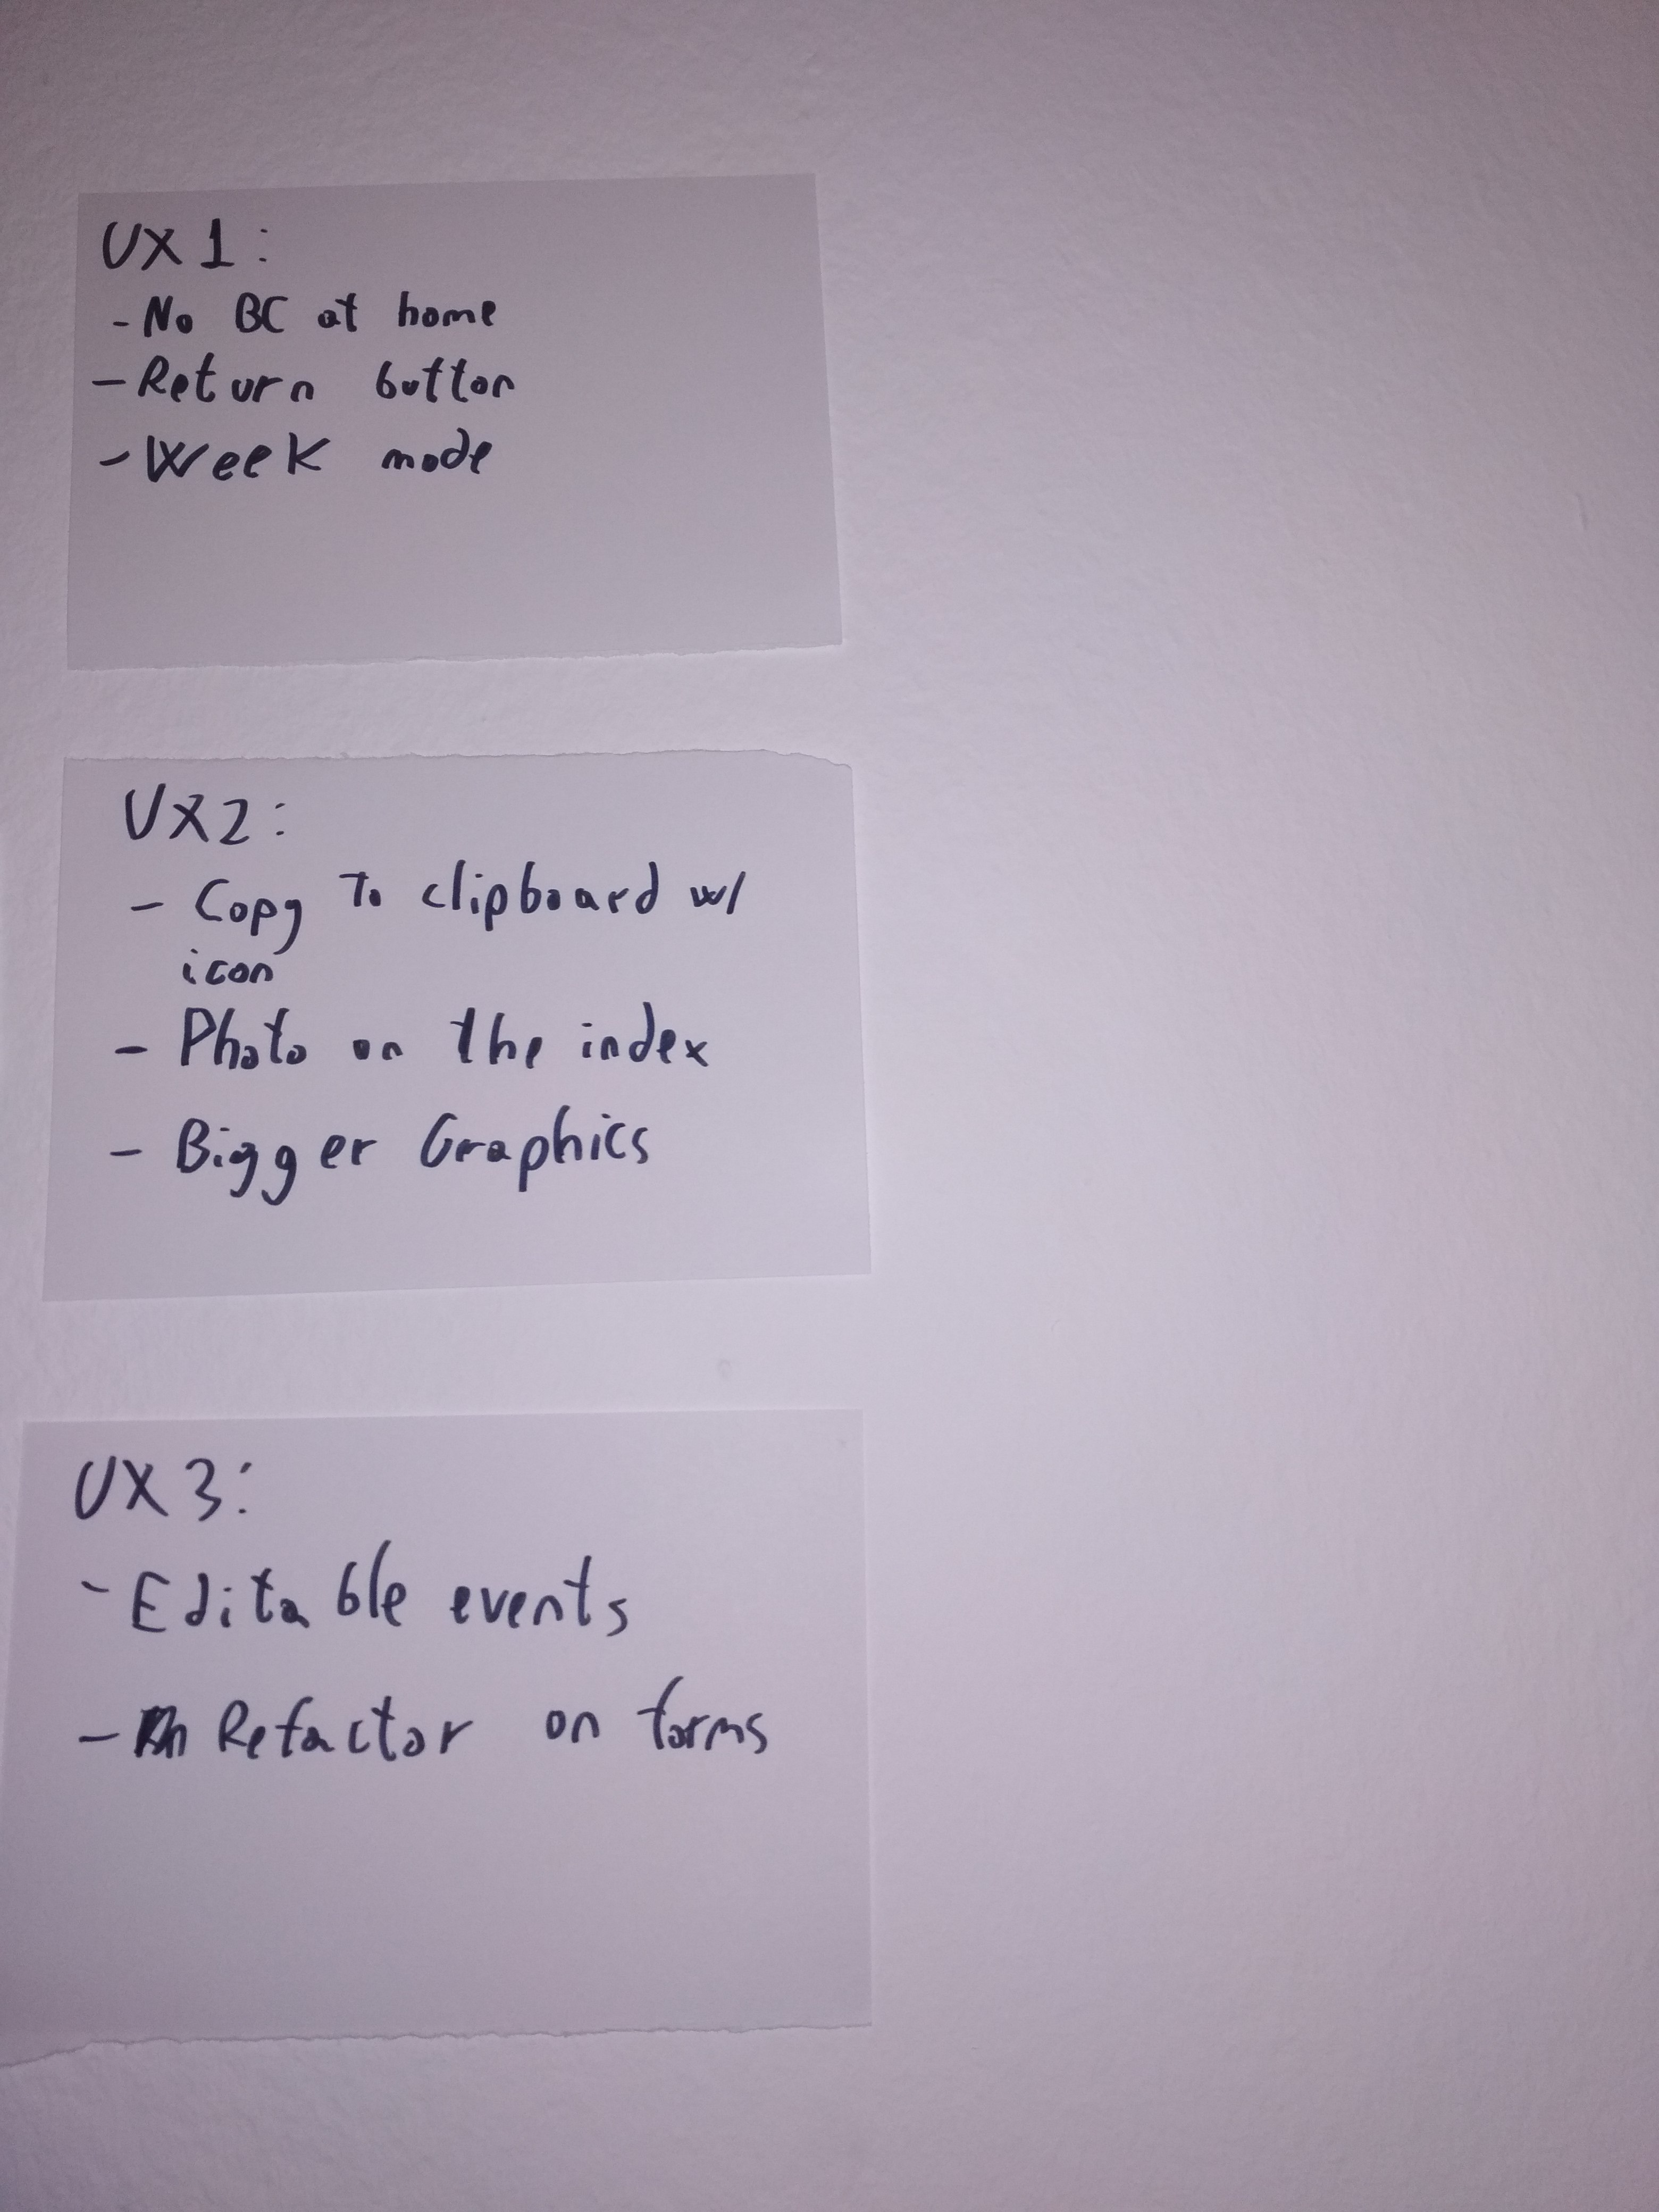 UX1:
- No BC at home
- Return button
- Week mode
UX2:
- Copy To clipboard w/
icon
- Photo on the index
- Bigger Graphics
UX3:
- Editable events
- Refactor on forms